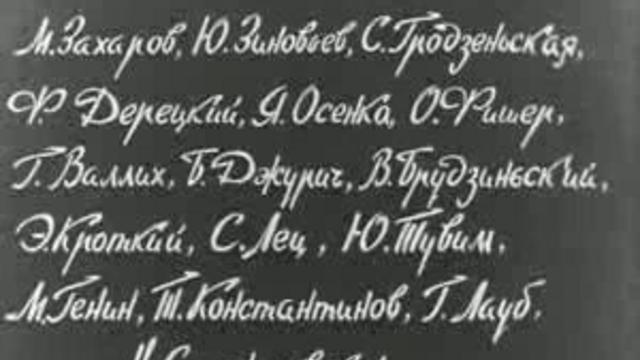 М. Захаров, Ю. Зиновьев, С. Гродзеньская,
Ф. Дерецкий, Я. Осенка, О. Фишер,
Г. Валлих, Б. Джурич, В. Брудзиньский,
Э. Кроткий, С. Лец, Ю. Тувим,
М. Генин, Т. Константинов, Г. Лауб,